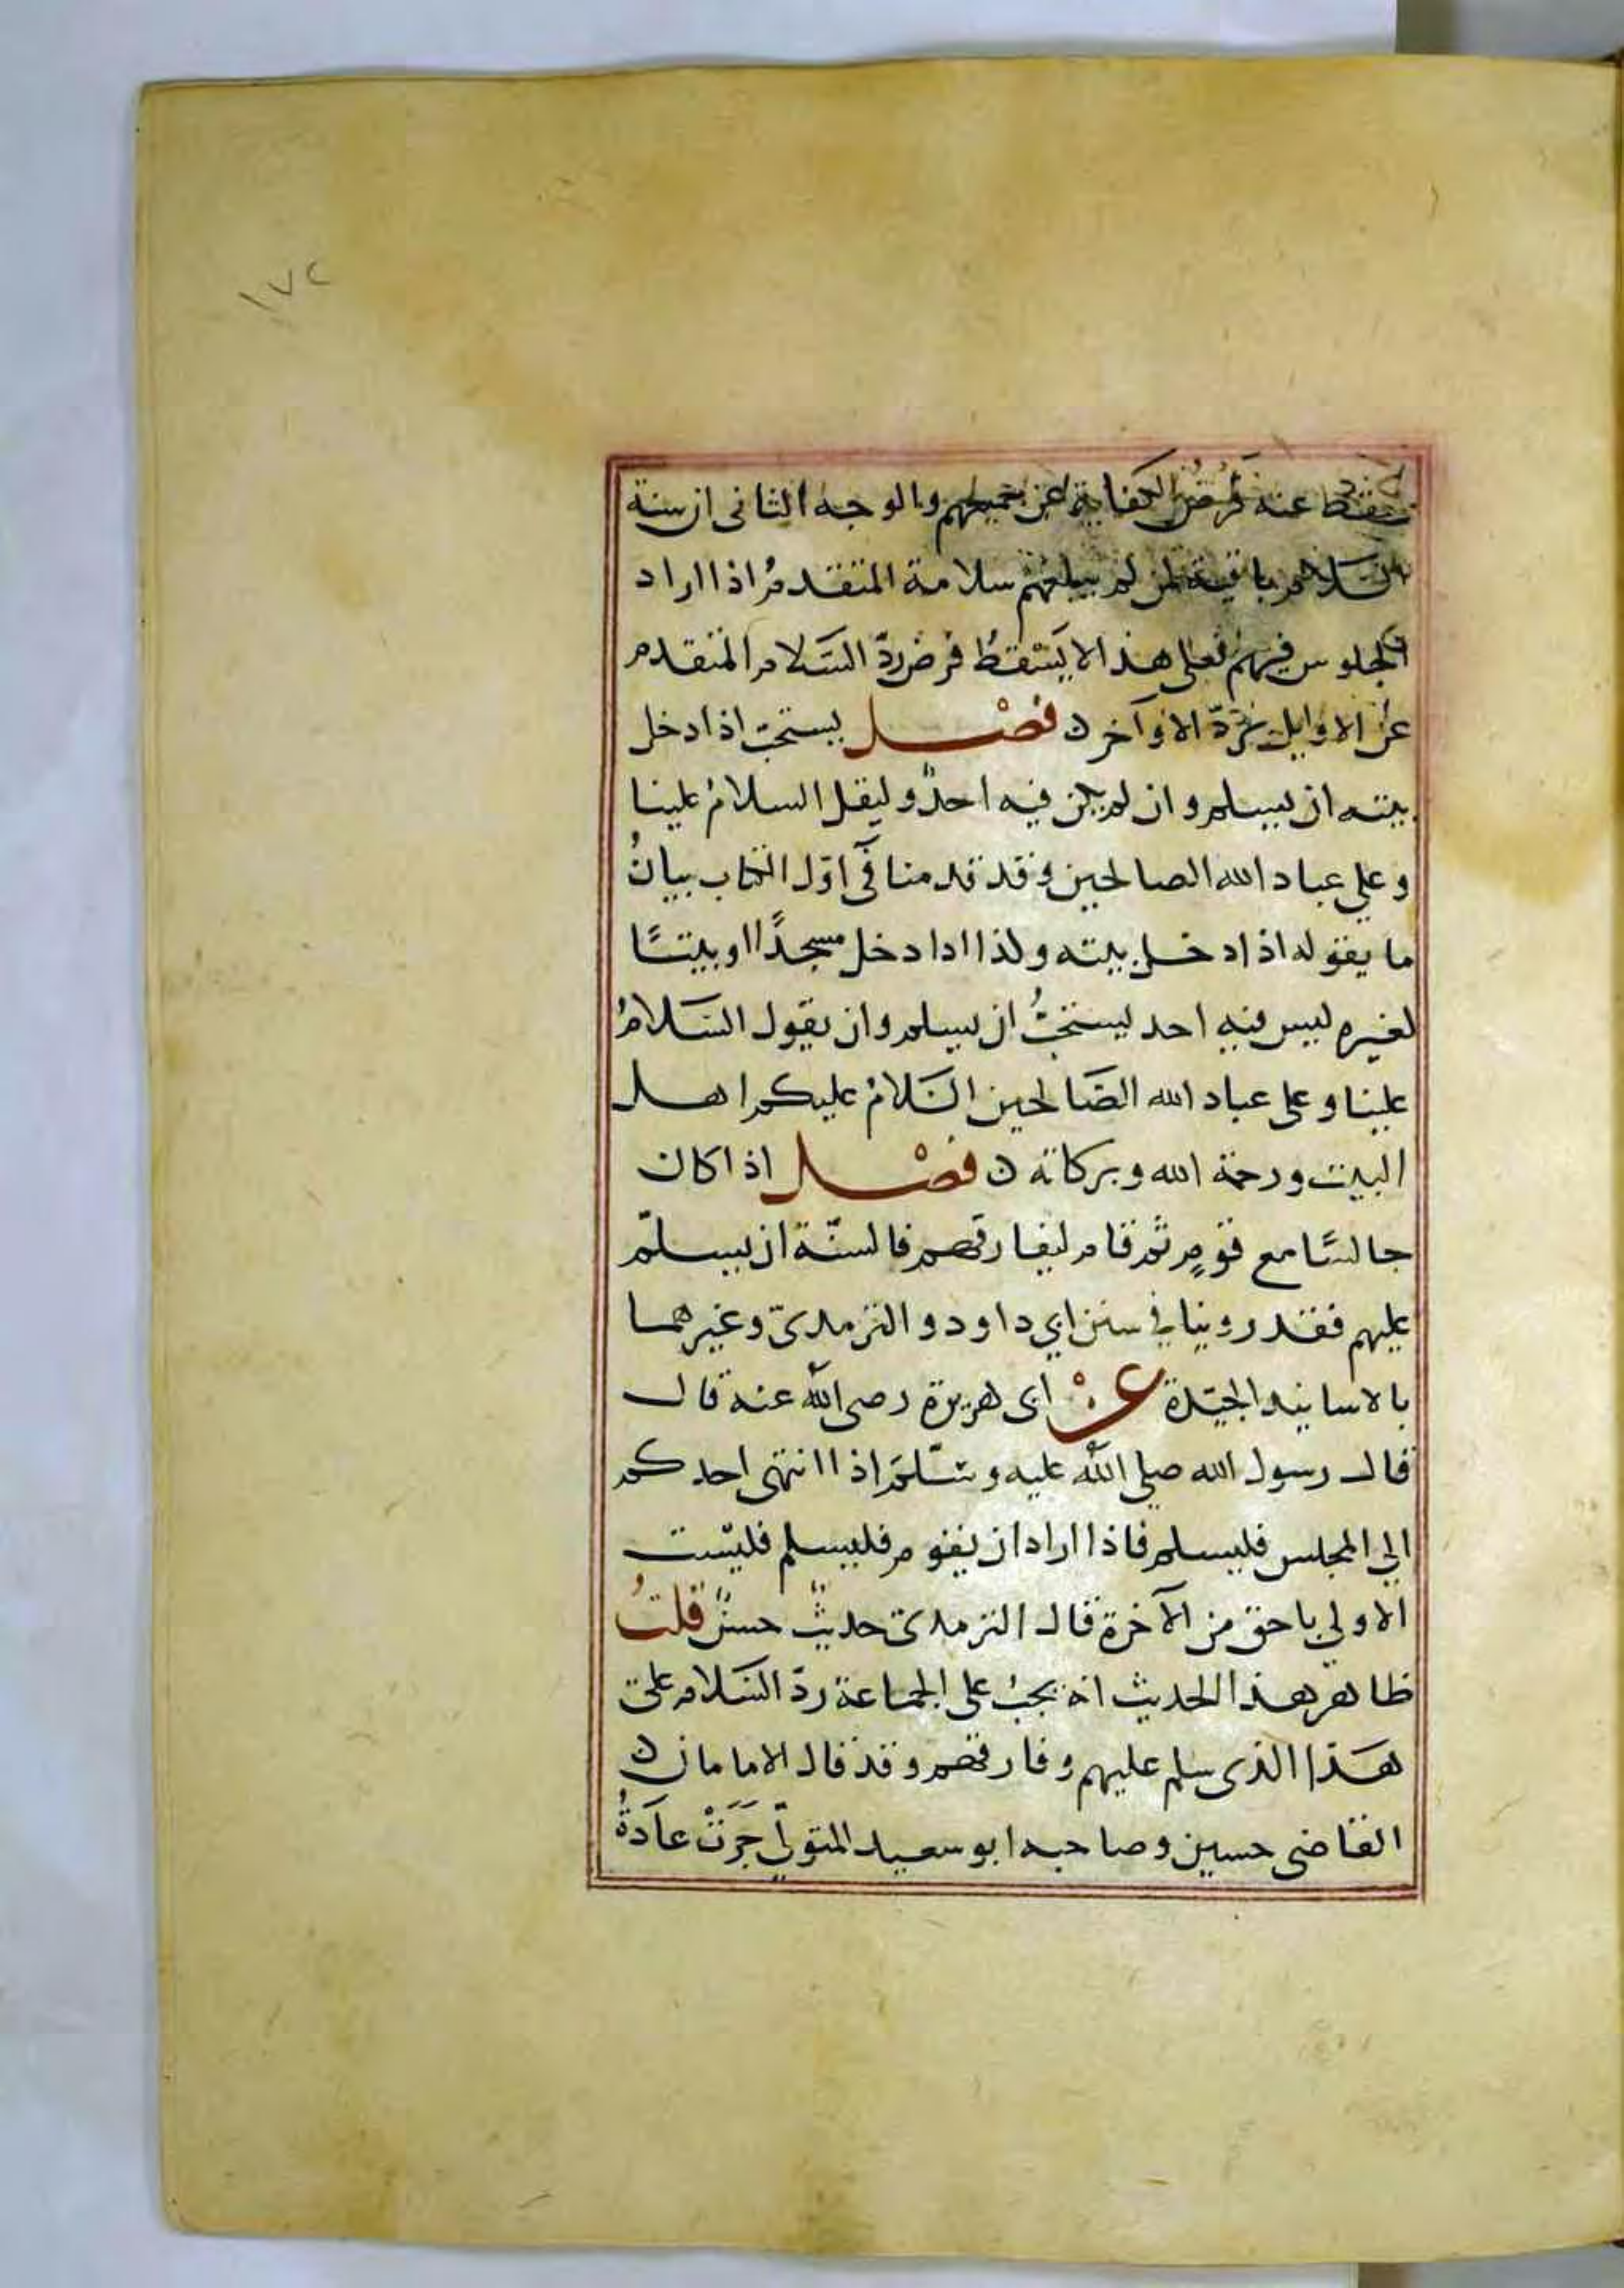 ١٧٢
سقط عنه فَرْضُ الكفاية عن جميعهم والوجه الثانى ان سنة
السّلام باقية لمن لم يبلغهم سلامة المتقدمُ اذا اراد
الجلوس فيهم فعلى هذا لا يَسْقطُ فرض ردّ السَّلام المتقدم
عن الاوايل بردّ الاوآخر ن فصْل يستحبّ اذا دخل
بيته ان يسلم وان لم يكن فيه احدٌ وليقل السلامُ علينا
وعلى عباد الله الصالحين وقد قدمنا فى اوّل الكتاب بيانُ
ما يقوله اذا دخل بيته وكذا اذا دخل مسجدًا او بيتًا
لغيره ليس فيه احد يستحبُّ ان يسلم وان يقول السَّلامُ
علينا وعلى عباد الله الصَّالحين السَّلامُ عليكم اهل
البيت ورحمة الله وبركاته ن فصْل اذا كان
جالسًا مع قومٍ ثم قام ليفارقهم فالسنّة ان يسلّم
عليهم فقد روينا فى سنن ابي داود والترمذىّ وغيرهما
بالاسانيد الجيّدة عنْ ابى هريرة رضى الله عنه قال
قال رسول الله صلى الله عليه وسّلمَ اذا انتهى احدكم
الى المجلس فليسلم فاذا اراد ان يقوم فليسلم فليست
الاولي باحق من الآخرة قال الترمذى حديثٌ حسنٌ قلتُ
ظاهر هذا الحديث انه يجبُ على الجماعة ردّ السَّلام على
هَذا الذى سلم عليهم وفارقهم وقد قال الامامان ن
القاضى حسين وصاحبه ابو سعيد المتولّي جَرَتْ عادَةُ